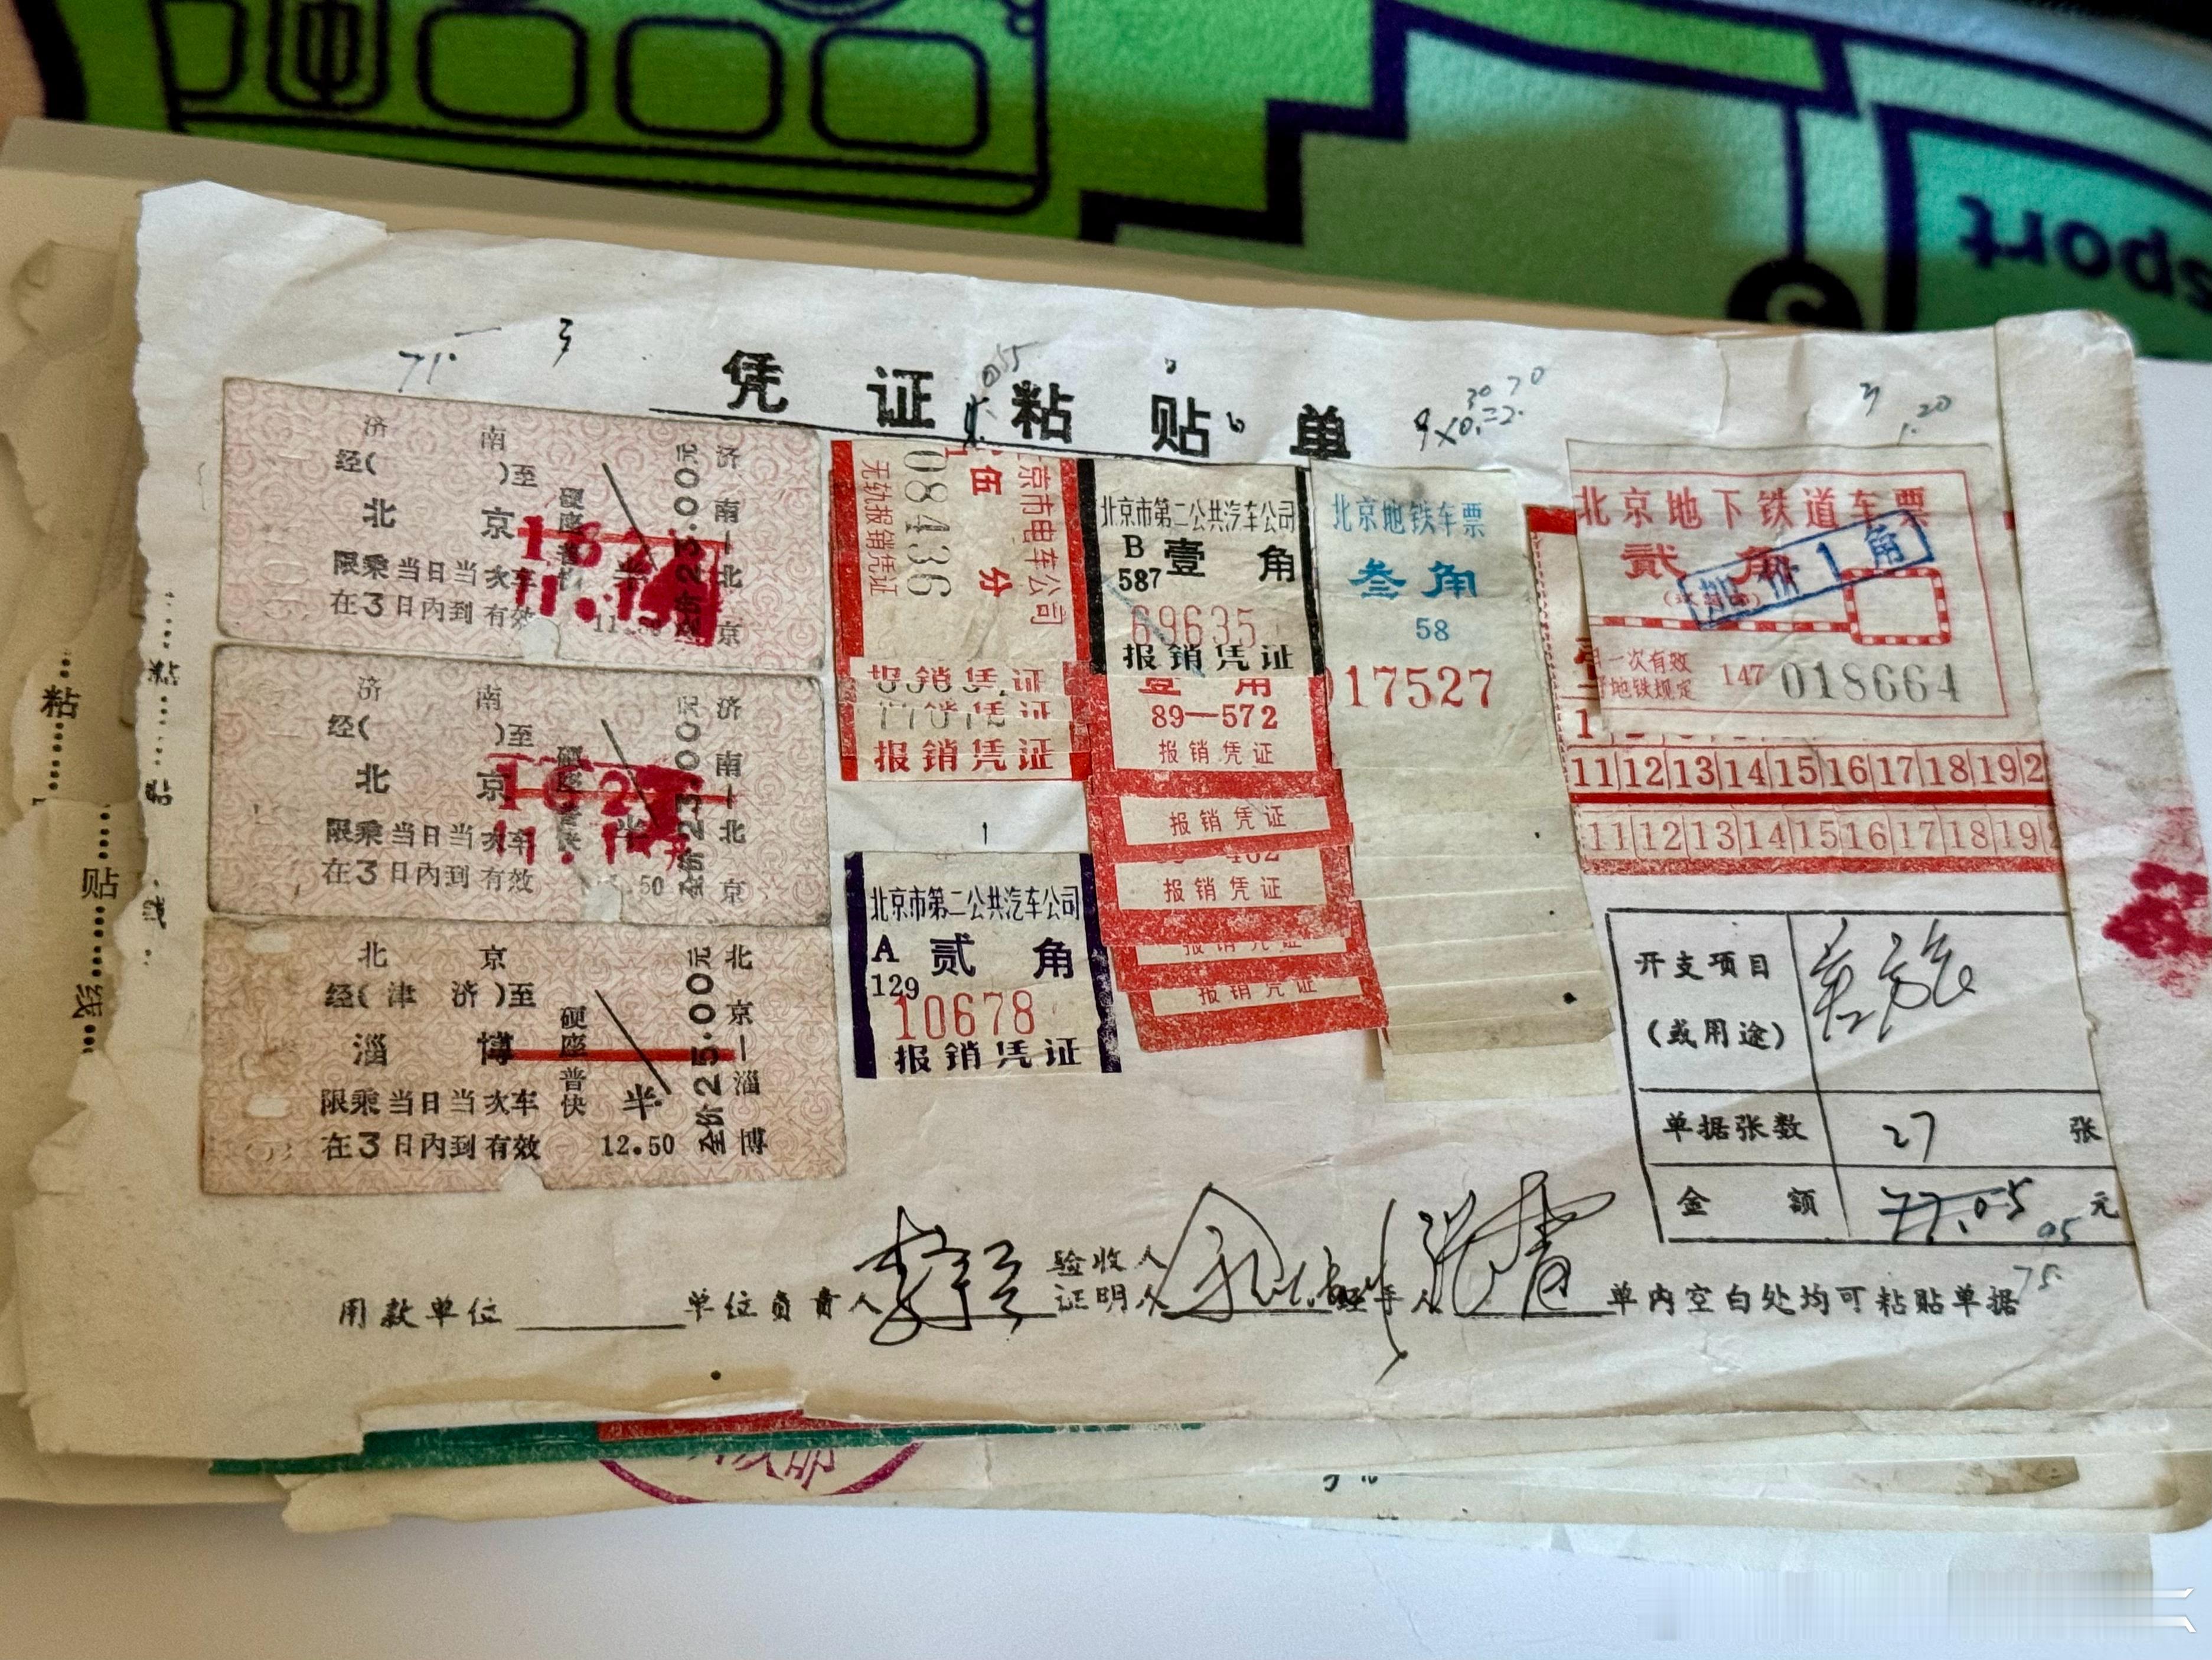 sport
S
凭证粘贴单
71.
3
055
6
9×0.30=2.70
3
1.20
济南
经( )至
北京
硬座普快
半
全价23.00元
济南—北京
162
11.1
限乘当日当次车
在3日内到有效
11.50
济南
经( )至
北京
硬座普快
半
全价23.00元
济南—北京
162
11.1
限乘当日当次车
在3日内到有效
11.50
北京
经(津济)至
淄博
硬座普快
半
全价25.00元
北京—淄博
限乘当日当次车
在3日内到有效
12.50
京市电车公司
伍分
084436
无轨报销凭证
报销凭证
报销凭证
报销凭证
北京市第二公共汽车公司
B 壹角
587
69635
报销凭证
壹角
89—572
报销凭证
报销凭证
报销凭证
报销凭证
报销凭证
北京市第二公共汽车公司
A 贰角
129
10678
报销凭证
北京地铁车票
叁角
58
017527
北京地下铁道车票
贰角
加价1角
一次有效
地铁规定
147 018664
11 12 13 14 15 16 17 18 19 2
11 12 13 14 15 16 17 18 19
开支项目
(或用途)
差旅
单据张数 27 张
金额 77.05 元
75.05
用款单位
单位负责人
验收人
证明人
经手人
单内空白处均可粘贴单据
粘贴线
粘贴线